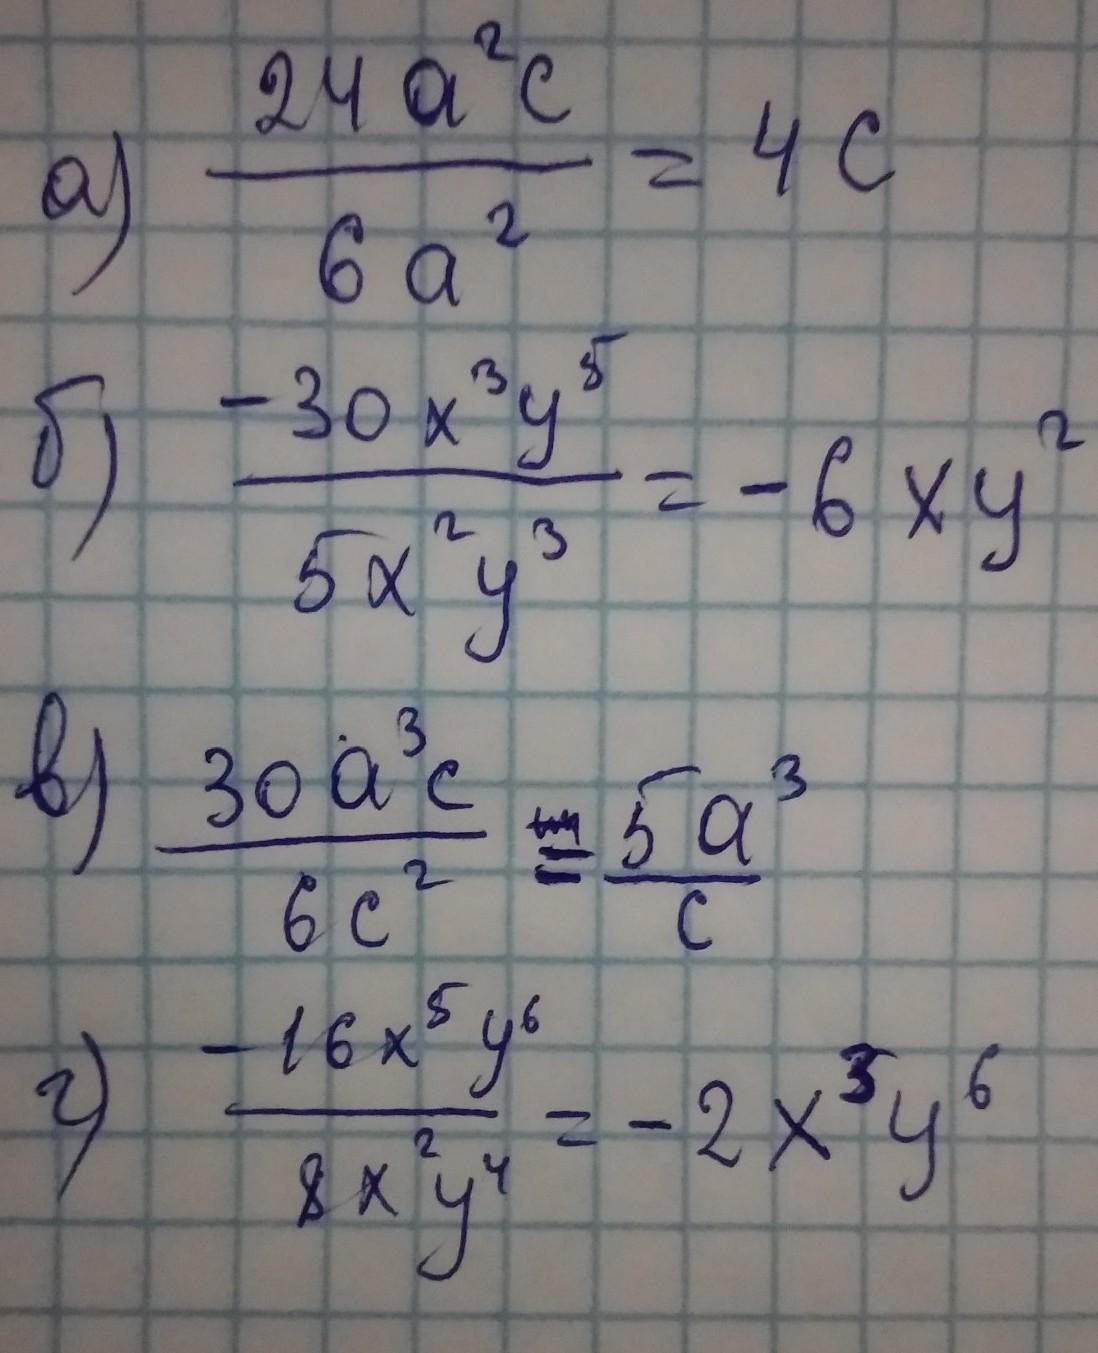 а) 24a²c / 6a² = 4c
б) -30x³y⁵ / 5x²y³ = -6xy²
в) 30a³c / 6c² = 5a³ / c
г) -16x⁵y⁶ / 8x²y⁴ = -2x³y⁶